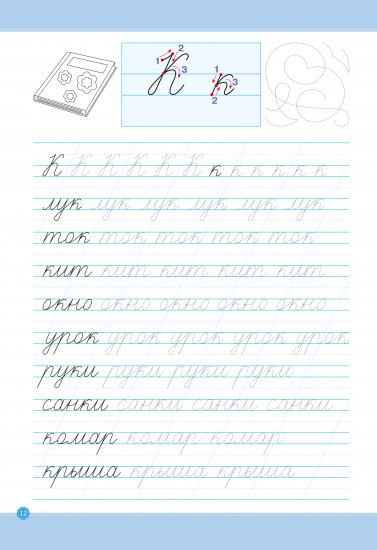 1 2 3 К 1 2 3 к
К К К К К К к к к к к к
лук лук лук лук лук лук
ток ток ток ток ток
кит кит кит кит кит
окно окно окно окно окно
урок урок урок урок урок
руки руки руки руки
санки санки санки санки
комар комар комар
крыша крыша крыша
12